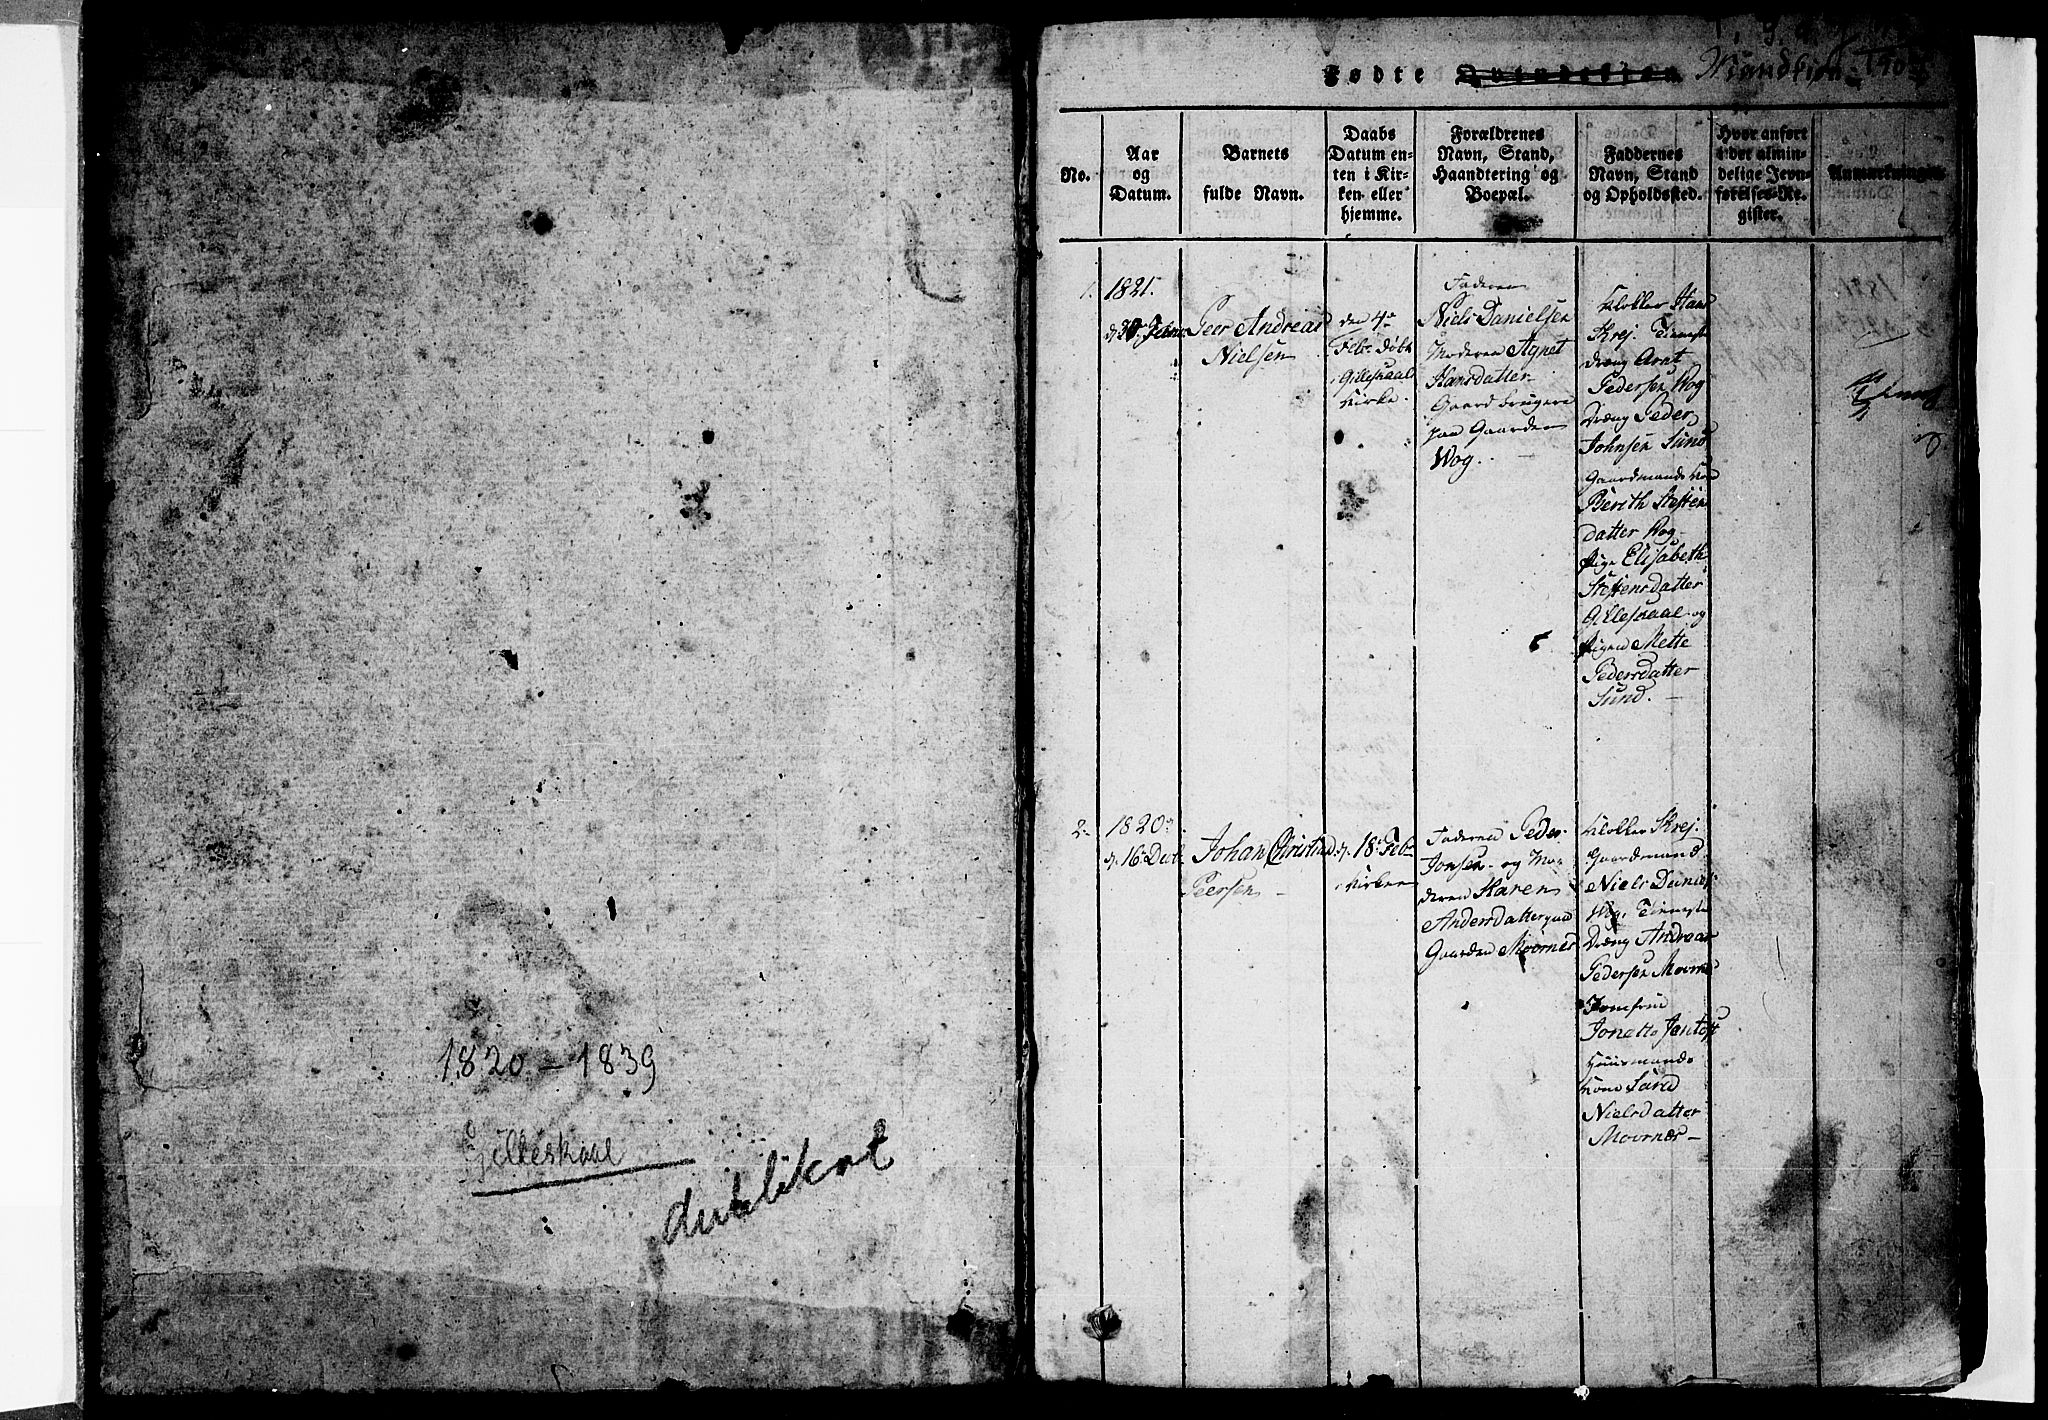 1820 – 1839
Gilleskaal
dublikat
Fødte Qvindekjøn Mandkjøn
No.
Aar
og
Datum.
Barnets
fulde Navn.
Daabs
Datum en-
ten i Kir-
ken eller
hjemme.
Forældrenes
Navn, Stand,
Haandtering og
Boepæl.
Faddernes
Navn, Stand
og Opholdssted.
Hvor anført
i det almin-
delige Jevn-
førelses-Re-
gister.
Anmærkninger.
1.
1821.
Febr
Peer Andreas
Nielsen
den 4de
Feb: døbt
i Gilleskaals
Kirke.
Faderen
Niels Danielsen
Moderen Agnet
Hansdatter
Gaardbrugere
paa Gaarden
Wog.
Klokker Hans
Skrej. Tieneste
dræng Arnt
Pedersen Wog
Dræng Peder
Johnsen Sund
Gaardmands Kone
Berith Steffens
datter Wog
Pige Elisabeth
Steffensdatter
Gilleskaal og
Pigen Mette
Pedersdatter
Sund.
2.
1820
d. 16 Decb:
Johan Christian
Peersen
d. 18 Feb:
i Kirken
Faderen Peder
Jonsen og Mo
deren Karen
Andersdatter paa
Gaarden Movrnes
Klokker Skrej.
Gaardmand
Niels Daniels:
Wog, Tieneste
Dræng Andreas
Pedersen Movrnes
Jomfrue
Jonetta Jentoft
Huusmands
Kone Sara
Nielsdatter
Movrnes